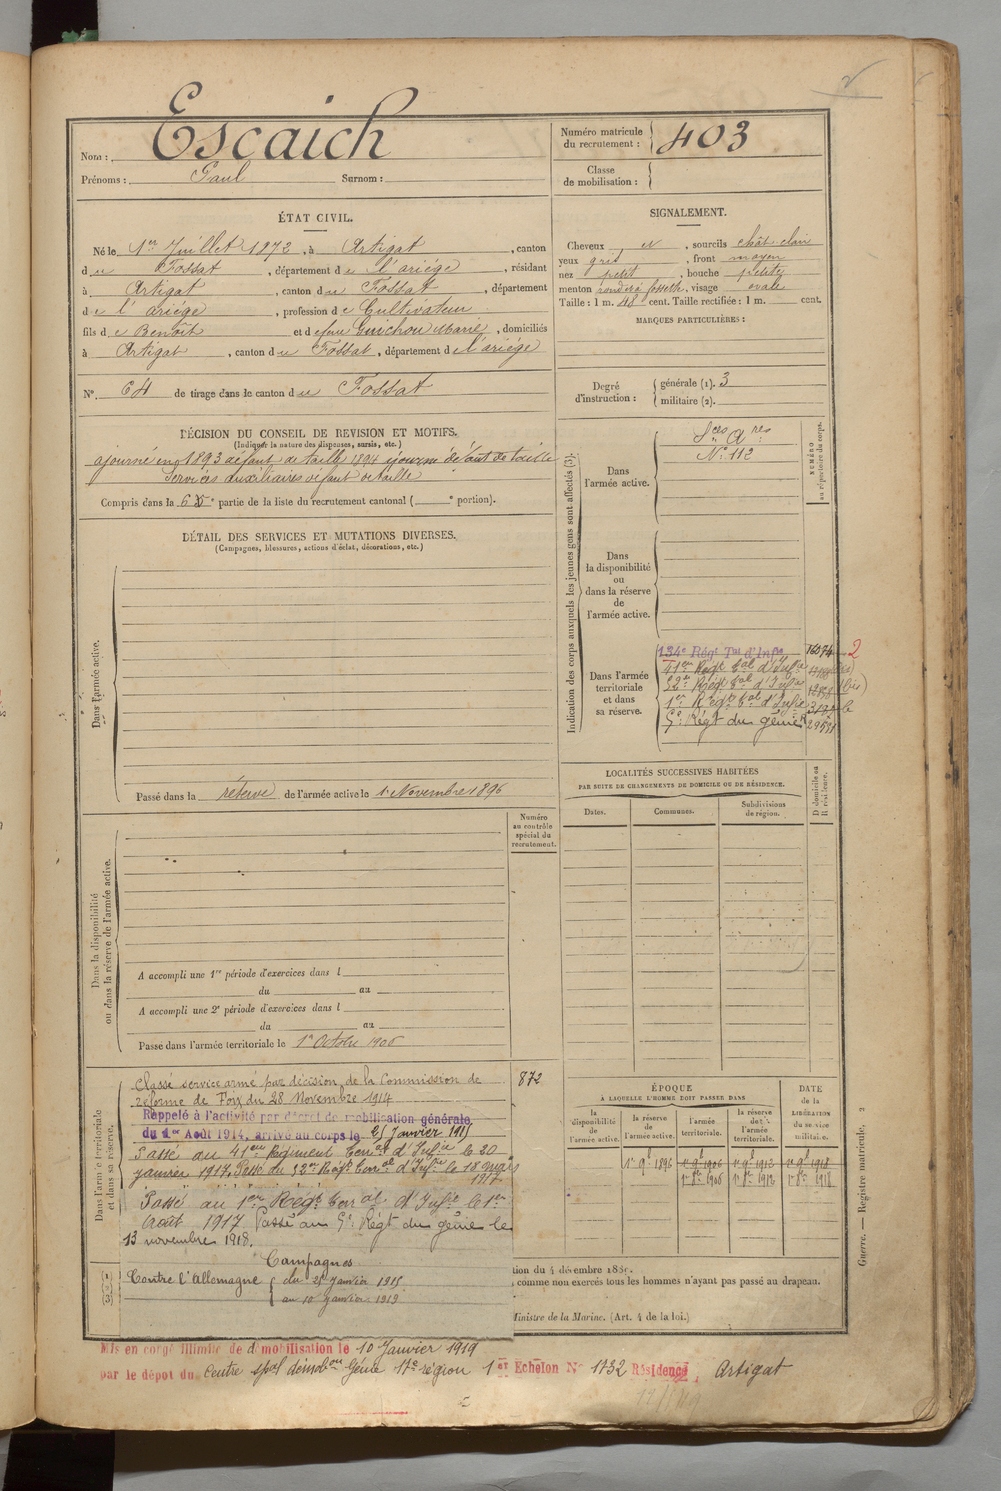 Nom : Escaich
Prénoms : Paul Surnom :
Numéro matricule du recrutement : 403
Classe de mobilisation :
ÉTAT CIVIL.
Né le 1er Juillet 1872, à Artigat, canton
du Fossat, département de l'ariége, résidant
à Artigat, canton du Fossat, département
de l'ariége, profession de Cultivateur
fils de Benoît et de feue Guichou Marie, domiciliés
à Artigat, canton du Fossat, département de l'ariége
N° 64 de tirage dans le canton du Fossat
SIGNALEMENT.
Cheveux N, sourcils chât. clair
yeux gris, front moyen
nez petit, bouche petite
menton rond à fossette, visage ovale
Taille : 1 m. 48 cent. Taille rectifiée : 1 m. cent.
MARQUES PARTICULIÈRES :
Degré d'instruction : générale (1). 3
militaire (2).
DÉCISION DU CONSEIL DE REVISION ET MOTIFS.
(Indiquer la nature des dispenses, sursis, etc.)
ajourné en 1893 défaut de taille 1894 ajourné défaut de taille
Services auxiliaires défaut de taille
Compris dans la 6e partie de la liste du recrutement cantonal ( e portion).
DÉTAIL DES SERVICES ET MUTATIONS DIVERSES.
(Campagnes, blessures, actions d'éclat, décorations, etc.)
Dans l'armée active.
Passé dans la réserve de l'armée active le 1er Novembre 1896
Indication des corps auxquels les jeunes gens sont affectés (3).
NUMÉRO au répertoire du corps.
Dans l'armée active.
Sces Ares
N° 112
Dans la disponibilité ou dans la réserve de l'armée active.
Dans l'armée territoriale et dans sa réserve.
134e Régt Tal d'Infie
41er Régt tal d'Infie
52e Régt tal d'Infie
1er Régt tal d'Infie
5e Régt du génie
LOCALITÉS SUCCESSIVES HABITÉES
PAR SUITE DE CHANGEMENTS DE DOMICILE OU DE RÉSIDENCE.
Dates. Communes. Subdivisions de région. D domicile ou R résidence.
Numéro au contrôle spécial du recrutement.
Dans la disponibilité ou dans la réserve de l'armée active.
A accompli une 1re période d'exercices dans l
du au
A accompli une 2e période d'exercices dans l
du au
Passé dans l'armée territoriale le 1er Octobre 1906
Dans l'armée territoriale et dans sa réserve.
872
Classé service armé par décision de la Commission de
réforme de Foix du 28 Novembre 1914
Rappelé à l'activité par décret de mobilisation générale
du 1er Août 1914, arrivé au corps le 25 Janvier 1915
Passé au 41eme Régiment Terral d'Infie le 30
janvier 1917. Passé au 52e Régt Terral d'Infie le 18 mars
1917
Passé au 1er Régt Terral d'Infie le 1er
Août 1917 Passé au 5e Régt du génie le
13 novembre 1918.
Campagnes
Contre l'Allemagne du 25 Janvier 1915
au 10 Janvier 1919
ÉPOQUE
À LAQUELLE L'HOMME DOIT PASSER DANS
la disponibilité de l'armée active.
la réserve de l'armée active.
l'armée territoriale.
la réserve de l'armée territoriale.
DATE de la LIBÉRATION du service militaire.
1er 9e 1896 1er 9e 1906 1er 9e 1912 1er 9e 1918
1er 8e 1906 1er 8e 1912 1er 8e 1918
comme non exercés tous les hommes n'ayant pas passé au drapeau.
Ministre de la Marine. (Art. 4 de la loi.)
Guerre. — Registre matricule. 2
Mis en congé illimité de démobilisation le 10 Janvier 1919
par le dépôt du Centre spal démobon Génie 17e région 1er Echelon N° 1132 Résidence, Artigat